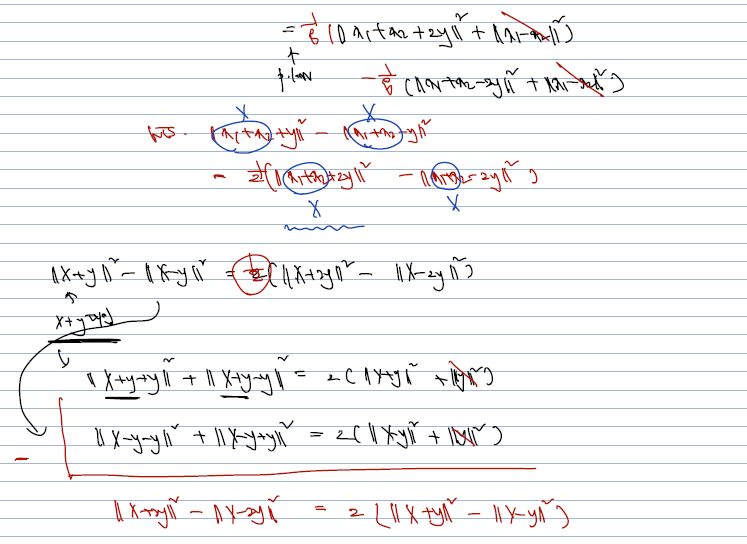 = 1/8 (‖x₁+x₂+2y‖² + ‖x₁-x₂‖²)
p.law
- 1/8 (‖x₁+x₂-2y‖² + ‖x₁-x₂‖²)
X X
WTS. ‖x₁+x₂+y‖² - ‖x₁+x₂-y‖²
= 1/2 (‖x₁+x₂+2y‖² - ‖x₁+x₂-2y‖²)
X X
‖X+y‖² - ‖X-y‖² = 1/2 (‖X+2y‖² - ‖X-2y‖²)
‖X+y+y‖² + ‖X+y-y‖² = 2(‖X+y‖² + ‖y‖²)
‖X-y-y‖² + ‖X-y+y‖² = 2(‖X-y‖² + ‖y‖²)
-
‖X+2y‖² - ‖X-2y‖² = 2(‖X+y‖² - ‖X-y‖²)